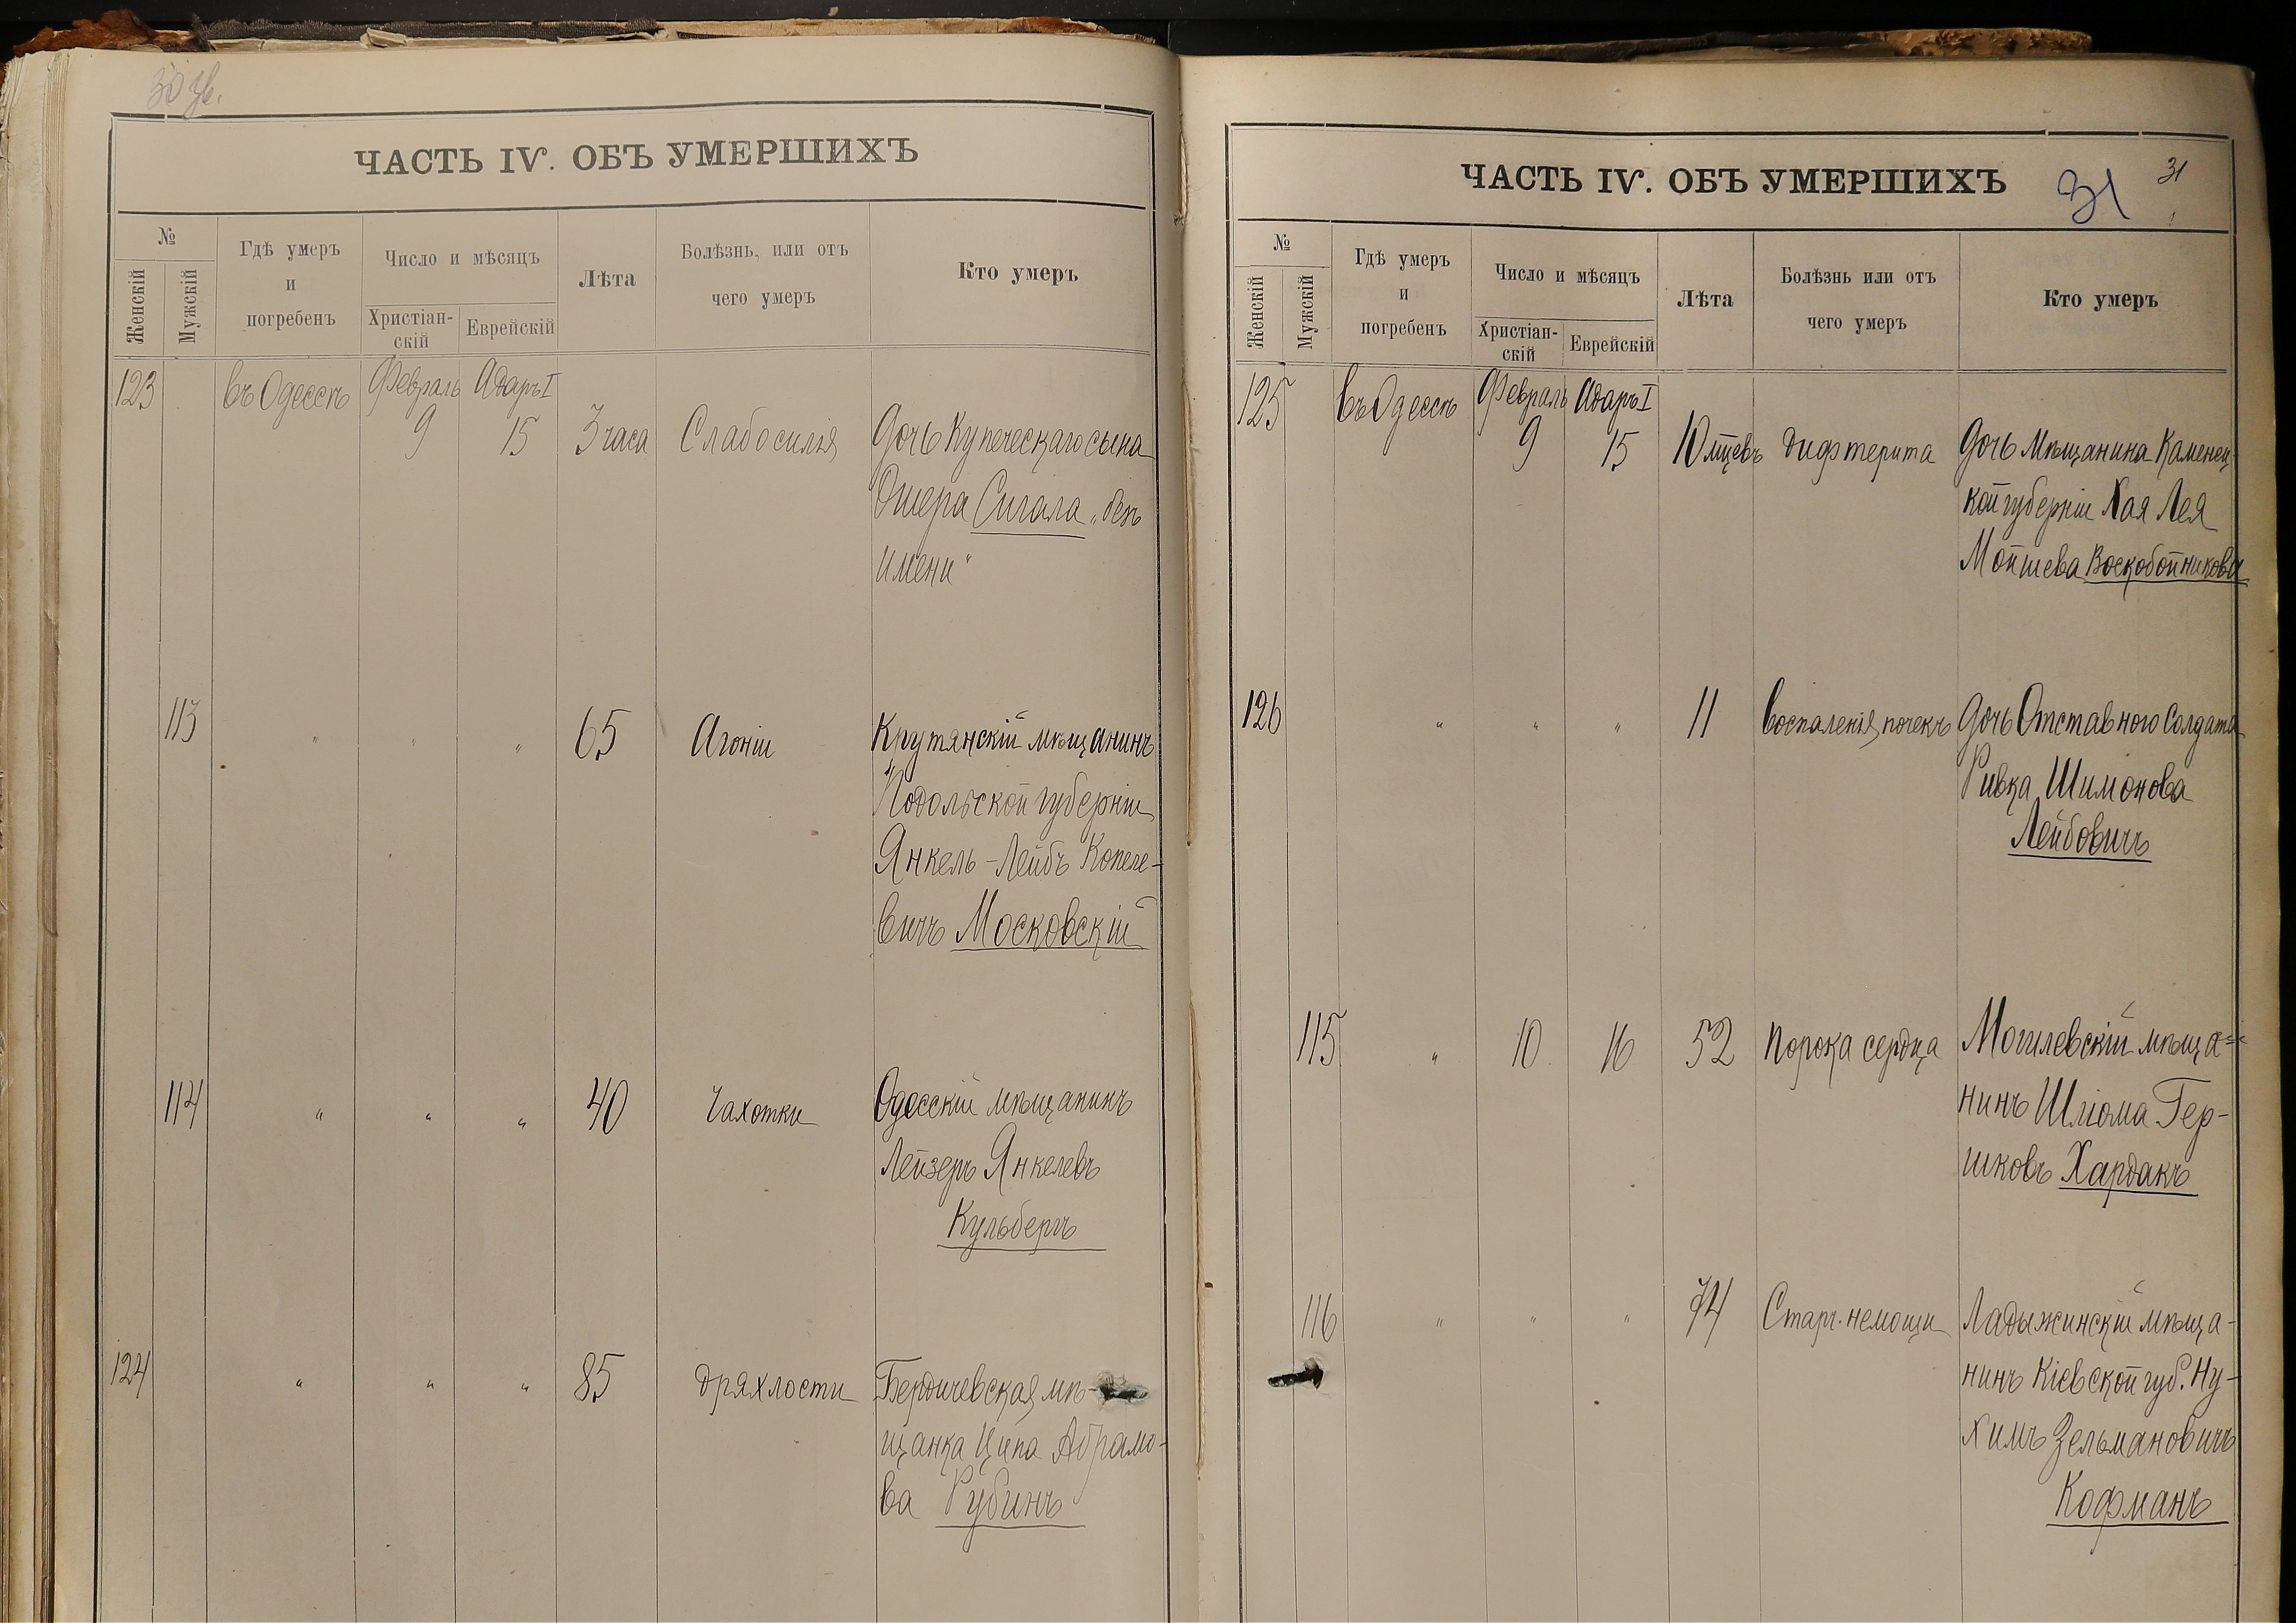 30 зв.
ЧАСТЬ IV. ОБЪ УМЕРШИХЪ
№
Женскій
Мужскій
Гдѣ умеръ
и
погребенъ
Число и мѣсяцъ
Христіан-
скій
Еврейскій
Лѣта
Болѣзнь, или отъ
чего умеръ
Кто умеръ
123 въ Одессѣ Февраль Адаръ I
9 15 3 часа Слабосилія Дочь Купеческаго сына
Ошера Сигала „безъ
имени“
113 „ „ „ 65 Агоніи Крутянскій мѣщанинъ
Подольской губерніи
Янкель-Лейбъ Копеле-
вичъ Московскій
114 „ „ „ 40 Чахотки Одесскій мѣщанинъ
Лейзеръ Янкелевъ
Кульбергъ
124 „ „ „ 85 дряхлости Бердичевская мѣ-
щанка Ципа Абрамо-
ва Рубинъ
ЧАСТЬ IV. ОБЪ УМЕРШИХЪ
31
31
№
Женскій
Мужскій
Гдѣ умеръ
и
погребенъ
Число и мѣсяцъ
Христіан-
скій
Еврейскій
Лѣта
Болѣзнь или отъ
чего умеръ
Кто умеръ
125 въ Одессѣ Февраль Адаръ I
9 15 10 мцевъ дифтерита Дочь мѣщанина Каменец-
кой губерніи Хая Лея
Мойшева Воскобойникова
126 „ „ „ 11 воспаленія почекъ Дочь Отставного Солдата
Ривка Шимонова
Лейбовичъ
115 „ 10 16 52 порока сердца Могилевскій мѣща-
нинъ Шлома Гер-
шковъ Хардакъ
116 „ „ „ 74 Старч. немощи Ладыжинскій мѣща-
нинъ Кіевской губ. Ну-
химъ Зельмановичъ
Кофманъ